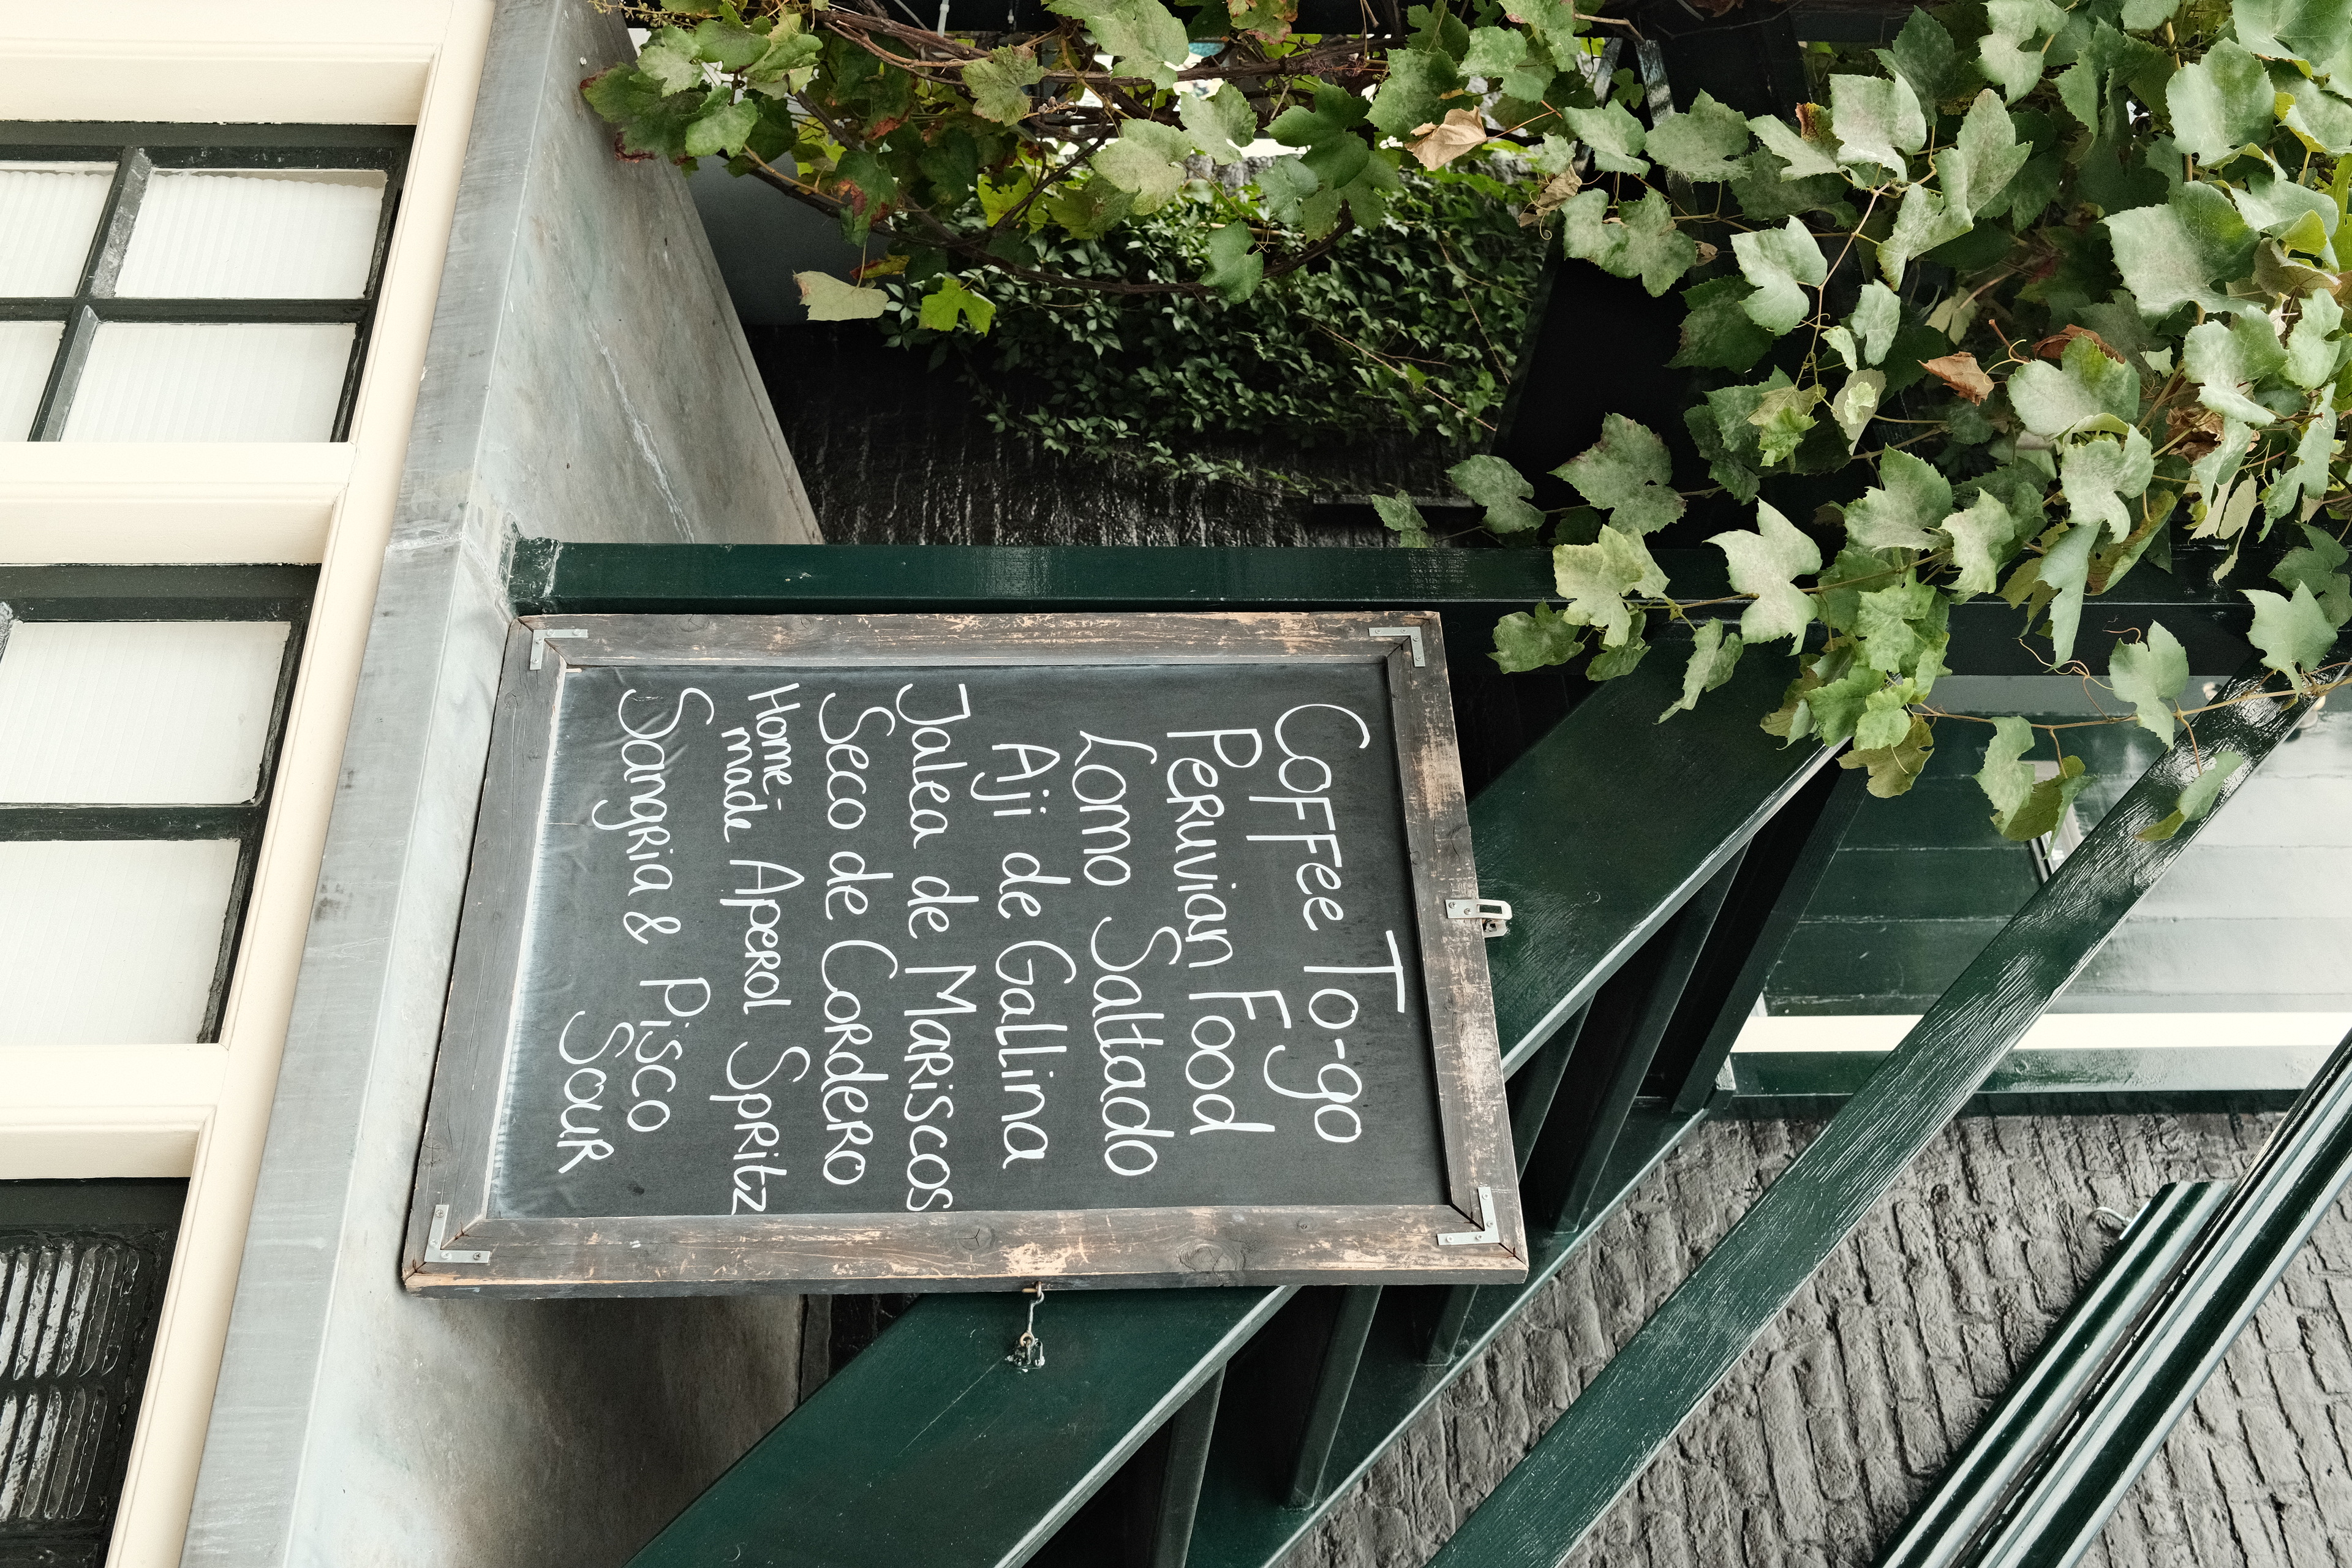 Coffee To-go
Peruvian Food
Lomo Saltado
Aji de Gallina
Jalea de Mariscos
Seco de Cordero
Home-made Aperol Spritz
Sangria & Pisco
Sour